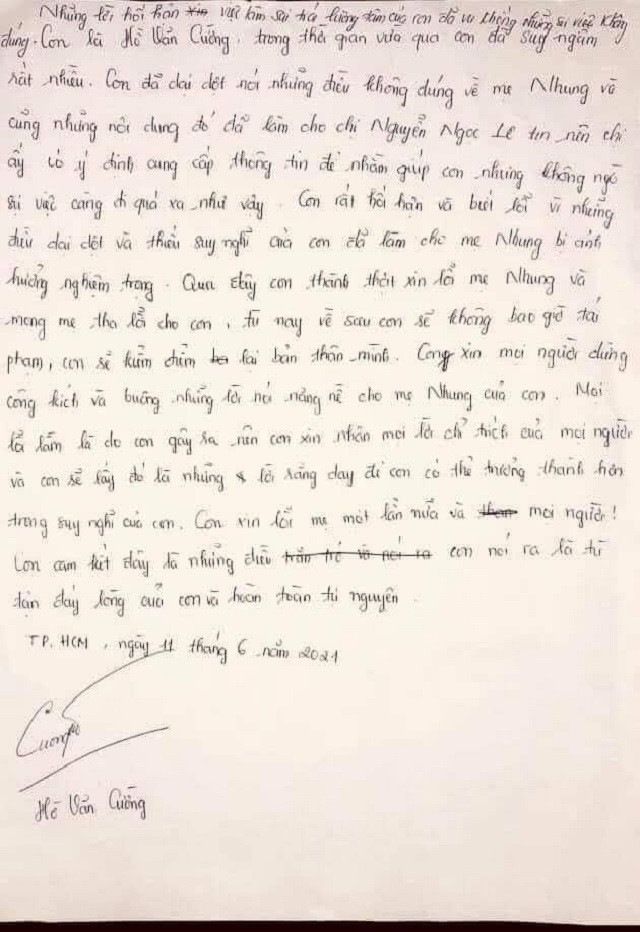 Những lời hối hận xin việc làm sai trái lương tâm của con đã vu khống những sự việc không
đúng. Con là Hồ Văn Cường, trong thời gian vừa qua con đã suy ngẫm
rất nhiều. Con đã dại dột nói những điều không đúng về mẹ Nhung và
cũng những nội dung đó đã làm cho chị Nguyễn Ngọc Lê tin nên chị
ấy có ý định cung cấp thông tin để nhằm giúp con nhưng không ngờ
sự việc càng đi quá xa như vậy. Con rất hối hận và biết lỗi vì những
điều dại dột và thiếu suy nghĩ của con đã làm cho mẹ Nhung bị ảnh
hưởng nghiệm trọng. Qua đây con thành thật xin lỗi mẹ Nhung và
mong mẹ tha lỗi cho con, từ nay về sau con sẽ không bao giờ tái
phạm, con sẽ kiểm điểm lại bản thân mình. Cong xin mọi người dừng
công kích và buông những lời nói nặng nề cho mẹ Nhung của con. Mọi
lỗi lầm là do con gây ra nên con xin nhận mọi lời chỉ trích của mọi người
và con sẽ lấy đó là những lời răng dạy để con có thể trưởng thành hơn
trong suy nghĩ của con. Con xin lỗi mẹ một lần nữa và mọi người!
Con cam kết đây là những điều con nói ra là từ
tận đáy lòng của con và hoàn toàn tự nguyện.
TP.HCM, ngày 11 tháng 6 năm 2021
Cường
Hồ Văn Cường